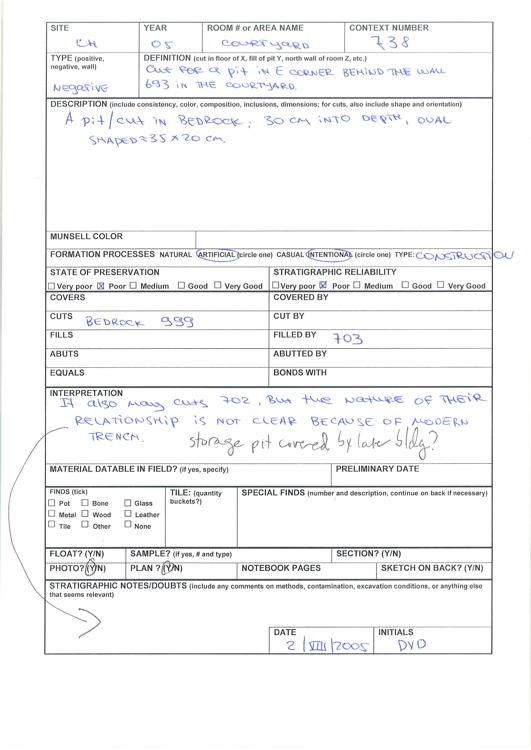 SITE YEAR ROOM # or AREA NAME CONTEXT NUMBER
CH 05 COURTYARD 738
TYPE (positive, negative, wall) DEFINITION (cut in floor of X, fill of pit Y, north wall of room Z, etc.)
Negative CUT FOR a PIT IN E CORNER BEHIND THE WALL
693 IN THE COURTYARD.
DESCRIPTION (include consistency, color, composition, inclusions, dimensions; for cuts, also include shape and orientation)
A pit/cut IN BEDROCK; 30 CM INTO DEPTH, OVAL
SHAPED ≈35 x 20 CM.
MUNSELL COLOR
FORMATION PROCESSES NATURAL ARTIFICIAL (circle one) CASUAL INTENTIONAL (circle one) TYPE: CONSTRUCTION
STATE OF PRESERVATION STRATIGRAPHIC RELIABILITY
☐ Very poor ☒ Poor ☐ Medium ☐ Good ☐ Very Good ☐ Very poor ☒ Poor ☐ Medium ☐ Good ☐ Very Good
COVERS COVERED BY
CUTS BEDROCK 999 CUT BY
FILLS FILLED BY 703
ABUTS ABUTTED BY
EQUALS BONDS WITH
INTERPRETATION
It also may cuts 702, But the NATURE OF THEIR
RELATIONSHIP IS NOT CLEAR BECAUSE OF MODERN
TRENCH. storage pit covered by late bldg?
MATERIAL DATABLE IN FIELD? (if yes, specify) PRELIMINARY DATE
FINDS (tick) TILE: (quantity buckets?) SPECIAL FINDS (number and description, continue on back if necessary)
☐ Pot ☐ Bone ☐ Glass
☐ Metal ☐ Wood ☐ Leather
☐ Tile ☐ Other ☐ None
FLOAT? (Y/N) SAMPLE? (if yes, # and type) SECTION? (Y/N)
PHOTO? (Y/N) PLAN ? (Y/N) NOTEBOOK PAGES SKETCH ON BACK? (Y/N)
STRATIGRAPHIC NOTES/DOUBTS (include any comments on methods, contamination, excavation conditions, or anything else
that seems relevant)
DATE INITIALS
2 / VIII / 2005 DVD